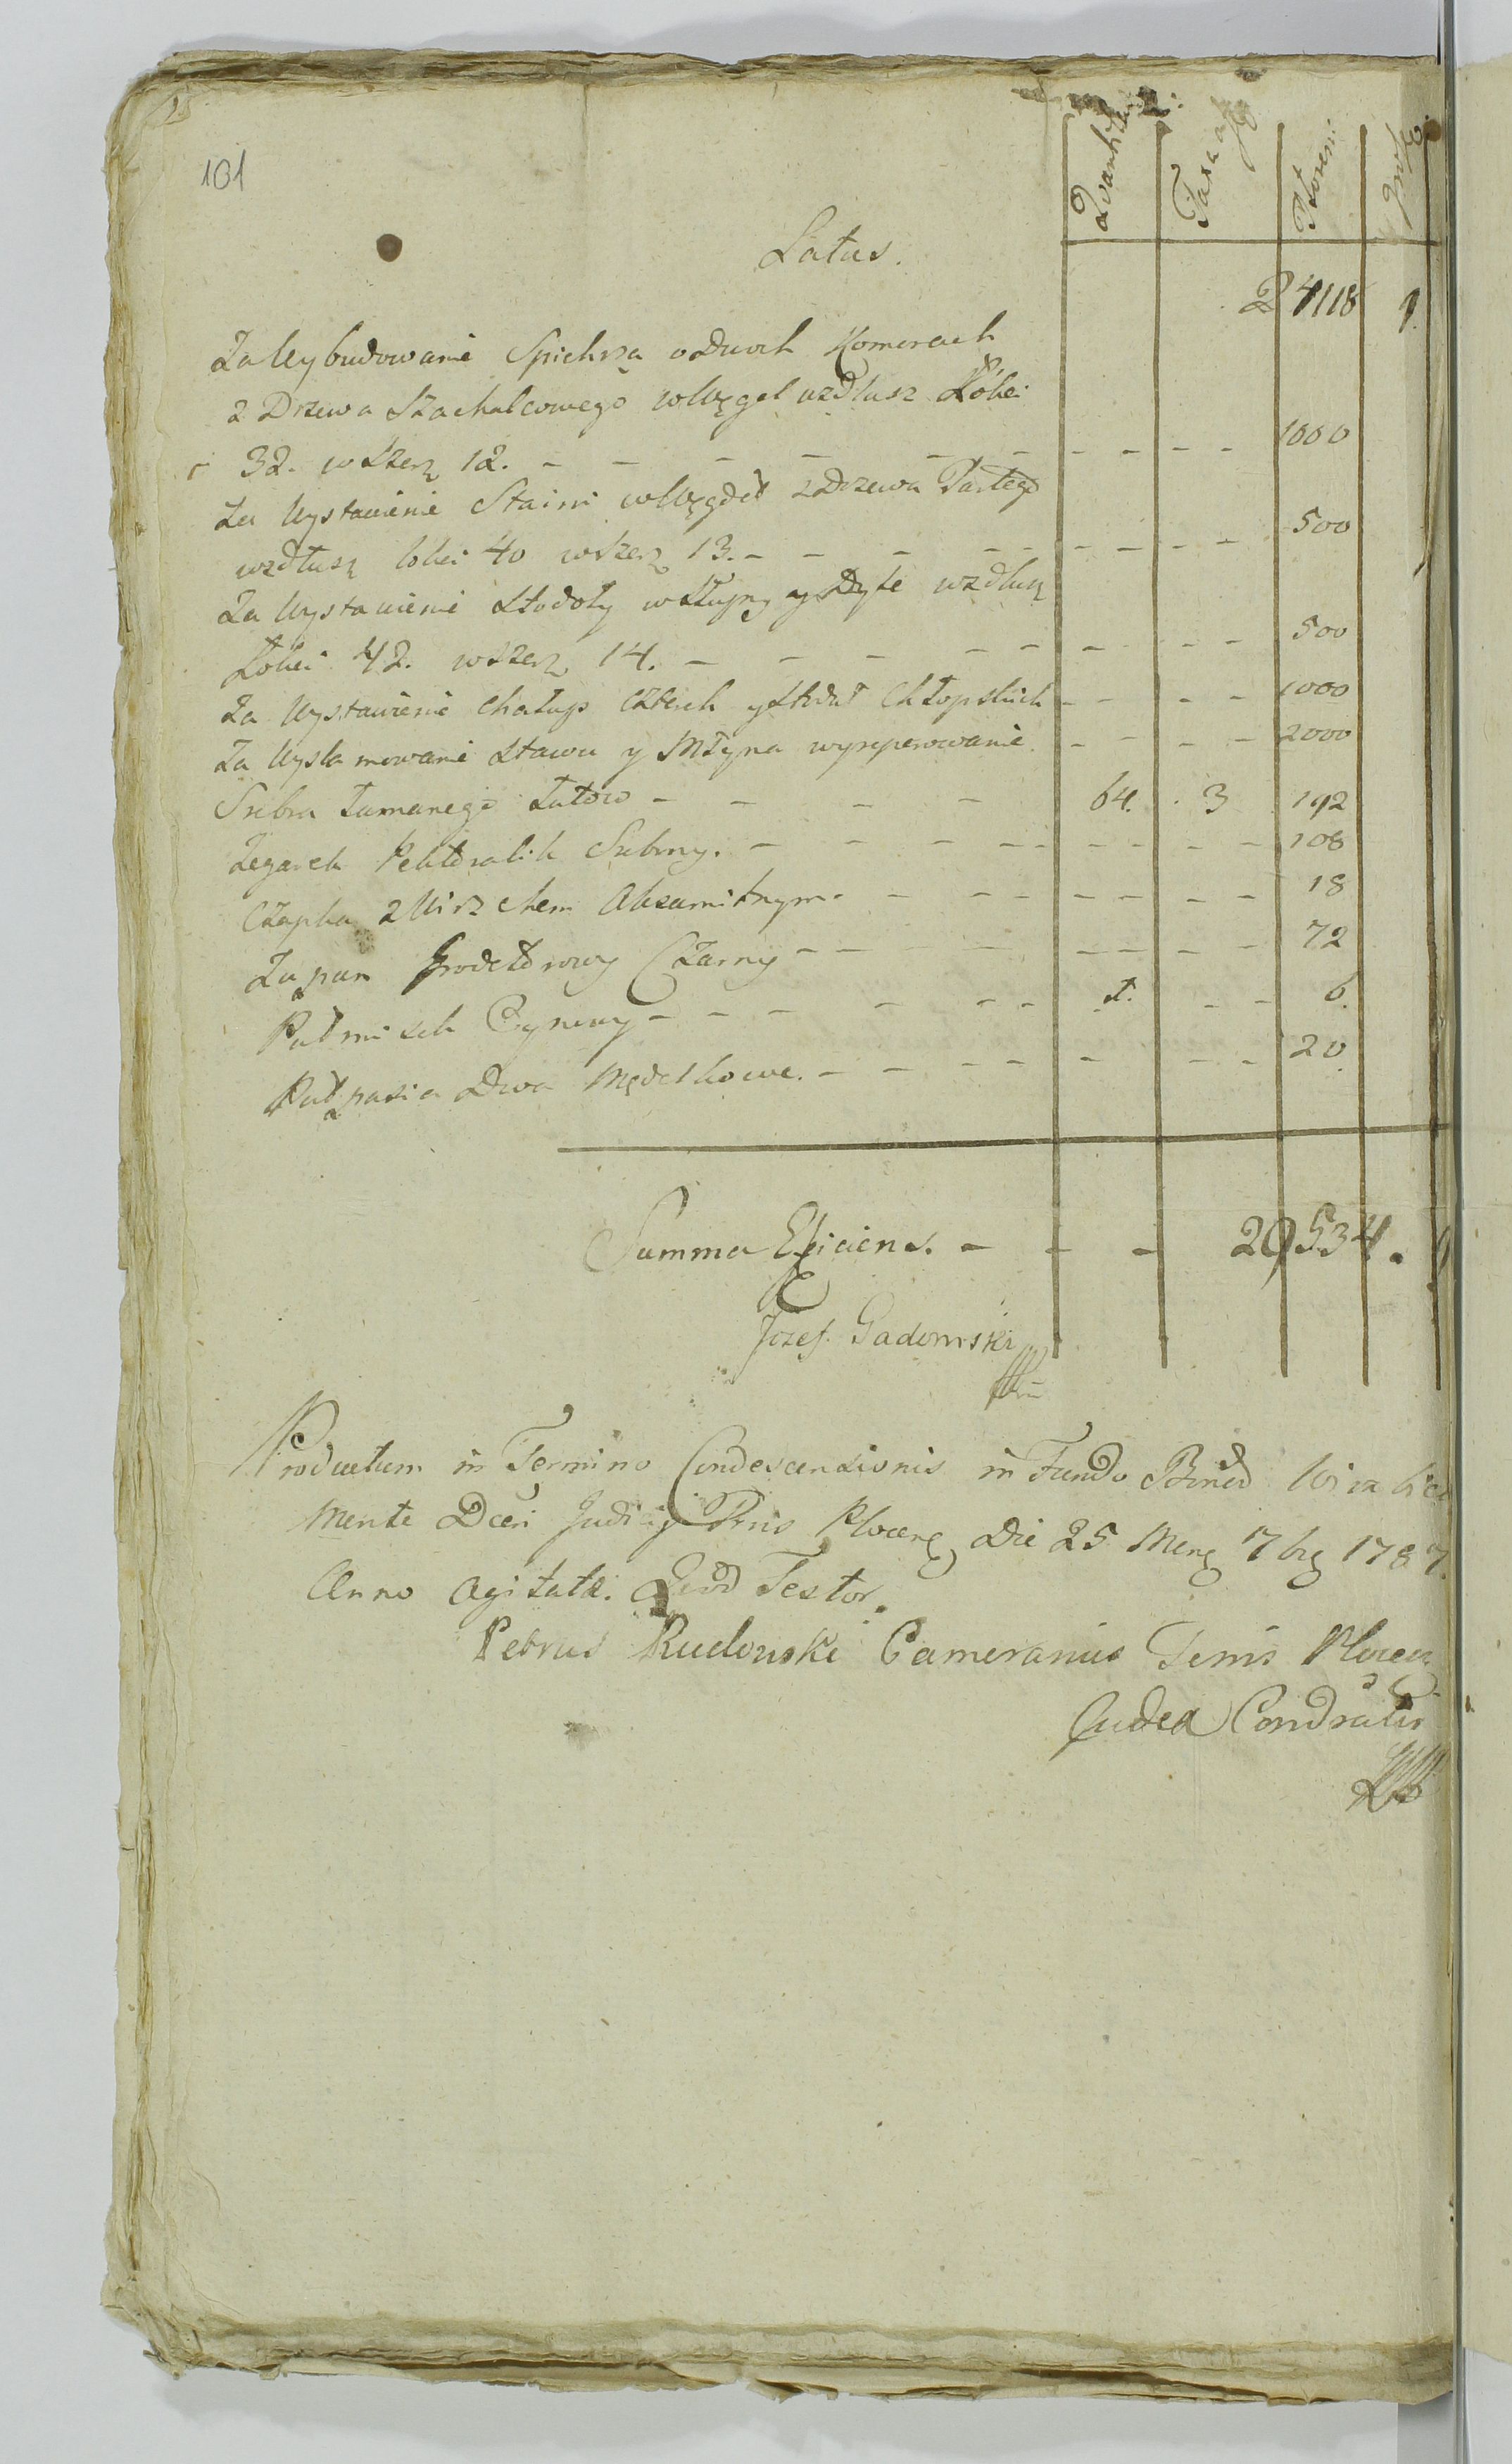 101
Kwantitas Taxa Floreni grosze
Latus.
24118 1.
Za Wybudowanie Spichrza o dwoch Komorach
z Drzewa Szachulcowego w Węgeł wzdłusz Łokci
32. wszerz 12. - - - - - - - - - - 1000
Za Wystawienie Staini w Węgieł z Drzewa Tartego
wzdłusz łokci 40 wszerz 13. - - - - - - - - - 500
Za Wystawienie Stodoły w Słupy y Dyle wzdłusz
Łokci 42. wszerz 14. - - - - - - - - 500
Za Wystawienie Chałup czterech y Stodoł Chłopskich - - - - 1000
Za Wysta mowanie Stawu y Młyna wyreperowanie - - - - 2000
Srebra Łamanego Łutow - - - - 64. 3 192
Zegarek Pektoralik Srebrny. - - - - - - - - - 108
Czapka z Wirzchem Aksamitnym - - - - - - - - 18
Zupan Grodetorowy Czarny - - - - - - - - 72
Pułmisek Cynowy - - - - - - 1. - - 6.
Pułpasia Dwa Mędelkowe. - - - - - - - - 20
Summa Efficiens. - - - 29534. 1
Jozef Gadomski
Productum in Termino Condescensionis in Fundo Bonor
mente Dcen Judicij Prnis Plocen Die 25 Mens 7bris 1787.
Anno agitatæ. Quod Testor.
Petrus Rudowski Camerarius Terris Plocen
Judex Condralis